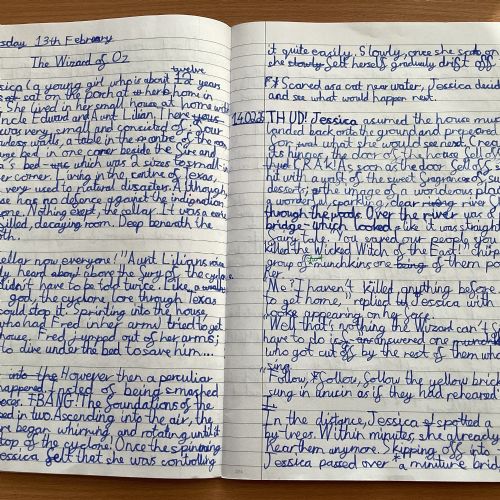 sday 13th February
The Wizard of Oz
twelve
sica (a young girl who is about 12 years
sat on the porch at her home in
She lived in her small house at home with
Uncle Edward and Aunt Lilian. There
was very small and consisted of four
walls, a table in the centre of the
bed in one corner beside the Sire and
a's bed which was 2 sizes to small in
er corner. Living in the centre of Texas,
very used to natural disaster. Although,
has no defence against the indignation
one. Nothing exept, the cellar. It was a
filled, decaying room. Deep beneath the
th.
ellar now everyone!" Aunt Lilians voice
ly heard above the fury of the cyclone
didn't have to be told twice. Like a
god, the cyclone tore through Texas
could stop it. Sprinting into the house,
who had Fred in her arms) tried to get
house. Fred jumped out of her arms;
to dive under the bed to save him....
into the However then a peculiar
happened. Insted of being smashed
pieces. BANG! The foundations of the
sed in two. Ascending into the air, the
re began whirring, and rotating until it
top of the cyclone. Once the spinning
Jessica felt that she was controlling
it quite easily. Slowly, once she
she slowly felt herself gradualy drift off
Scared as a cat near water, Jessica decid
and see what would happen next.
14.02.25 THUD! Jessica asumed the house mus
landed back onto the ground and prepared
for what she would see next. Creak
its hinges, the door of the house fell of
thud CRRAK! As soon as the door fell of
hit with a yaft of the sweet fragrance of su
desserts; the image of a wonderous pla
a wonderful, sparkling clear river
through the woods. Over the river was a
bridge which looked like it was straight
fairy tale. "You saved our people you
killed the Wicked Witch of the East!" chirp
group of munchkins, one being of them po
her.
"Me? I haven't killed anything before.
to get home," replied Jessica with
looke appearing on her face.
"Well that's nothing the Wizard can't
have to do is- answered one munchkin
who got cut off by the rest of them wh
sing.
"Follow, follow, follow the yellow brick
sung in unison as if they had rehearsed
it.
In the distance, Jessica spotted a
by trees. Within minutes she already
hear them anymore. Skipping off into
Jessica passed over a miniture bridge